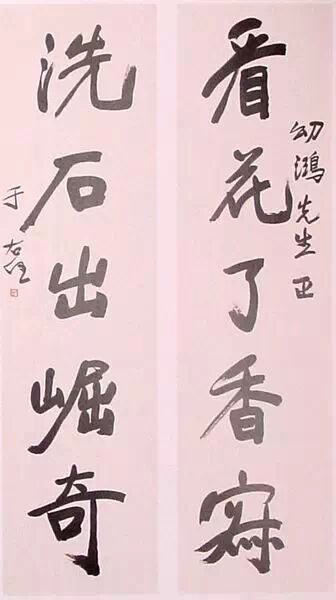 看花了香
幼鴻先生正
洗石出崛奇
于右任